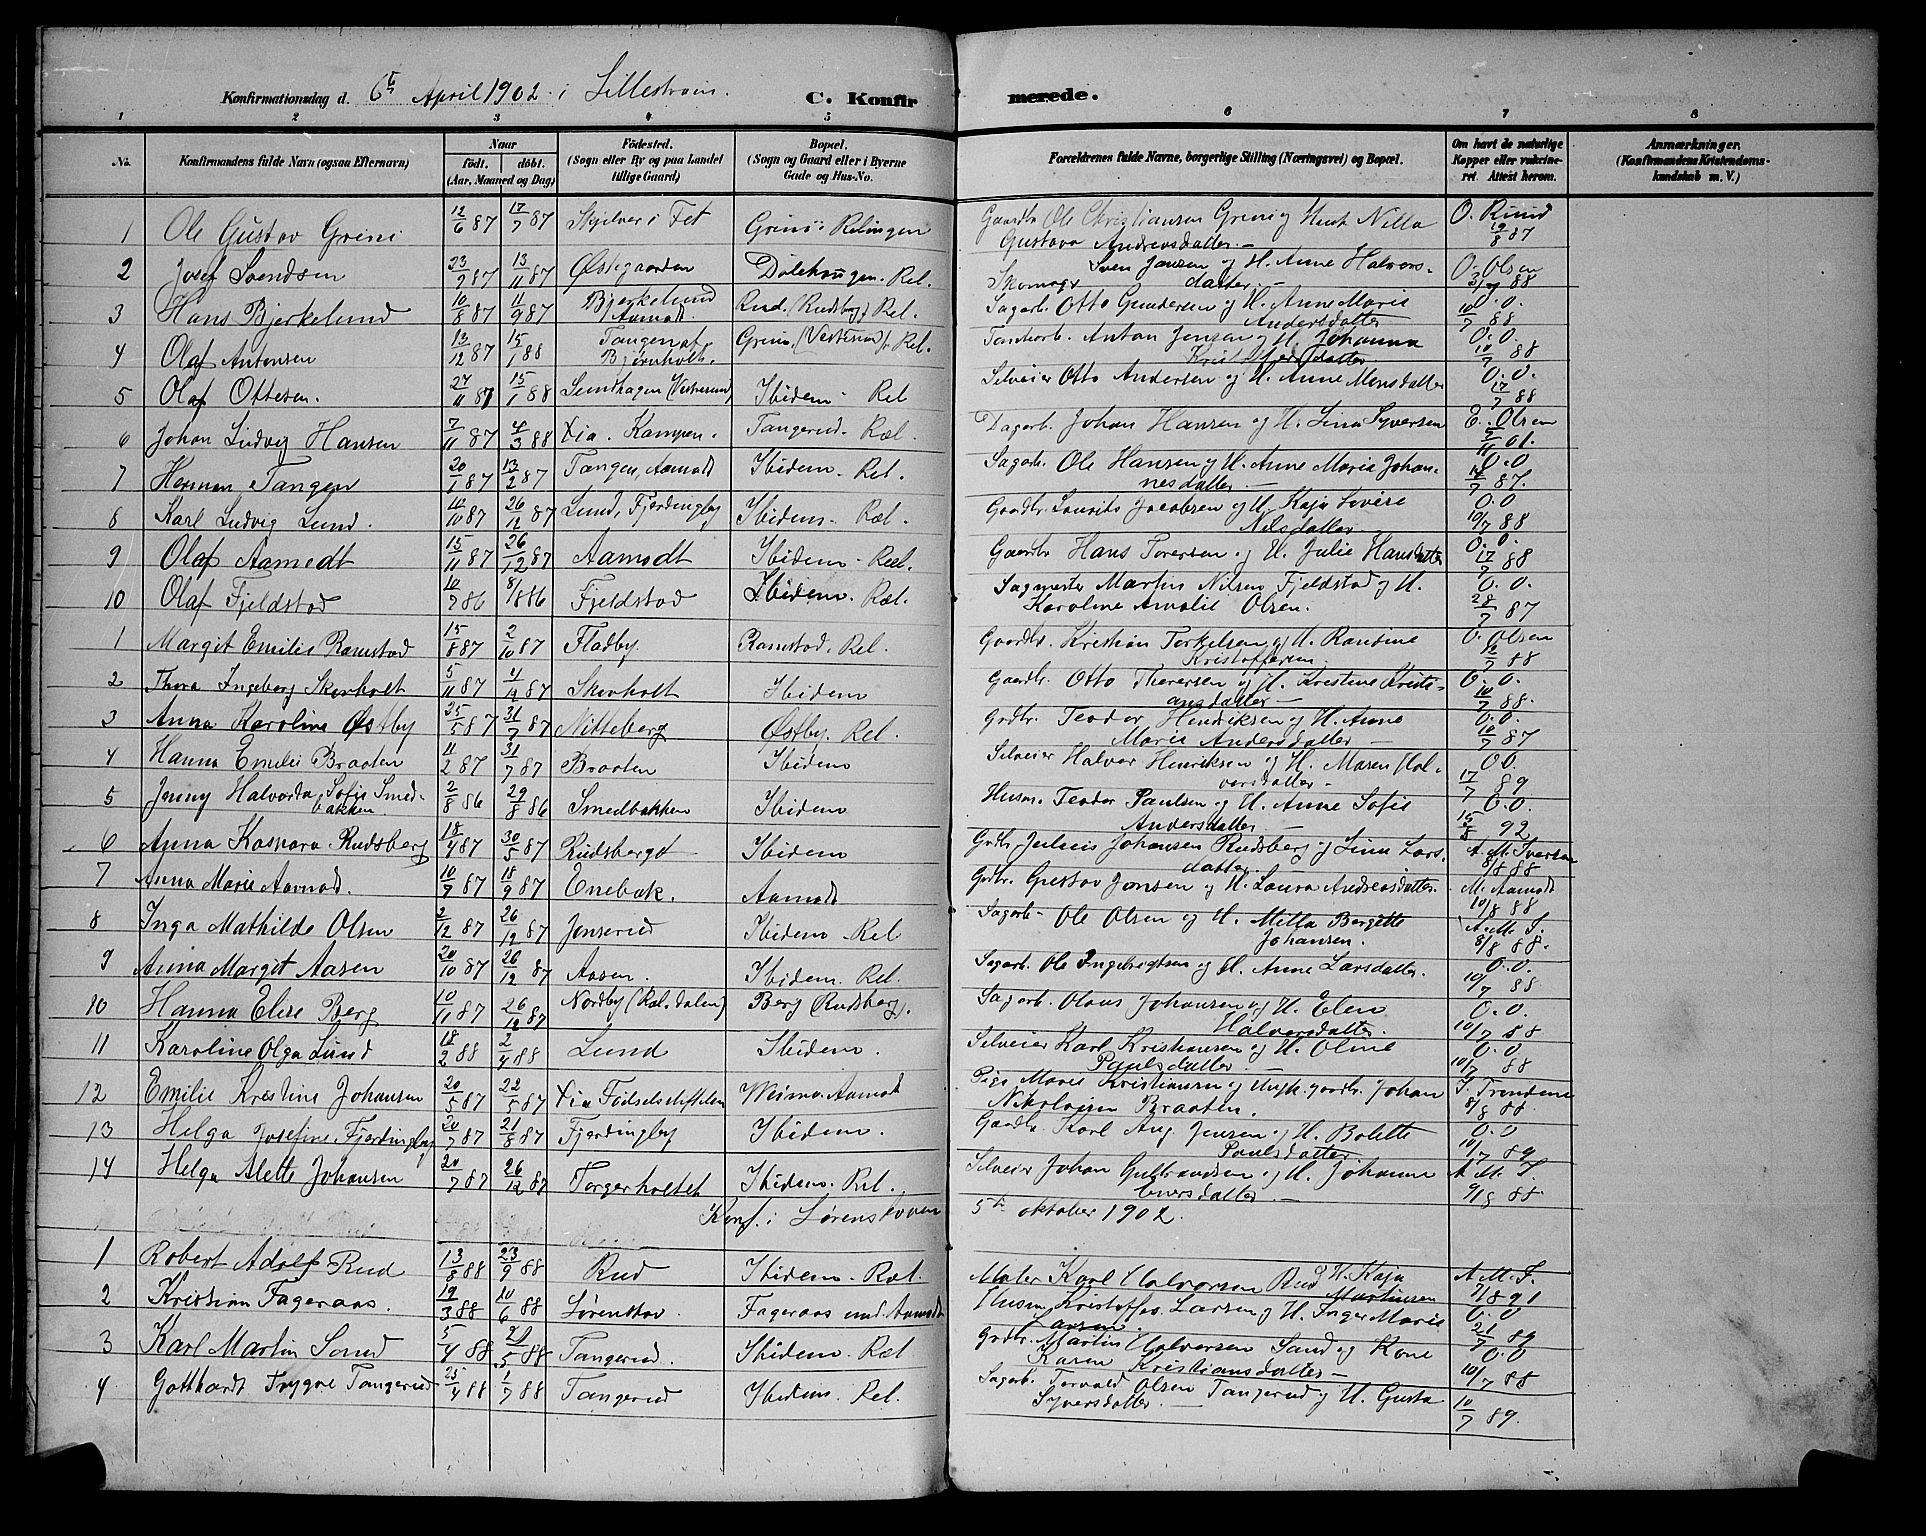 Konfirmationsdag d. 6te April 1902 i Lillestrøm. C. Konfirmerede.
1 2 3 4 5 6 7 8
No. Konfirmandens fulde Navn (ogsaa Efternavn) Naar født. døbt. (Aar, Maaned og Dag) Fødested. (Sogn eller By og paa Landet tillige Gaard) Bopæl. (Sogn og Gaard eller i Byerne Gade og Hus-No. Forældrenes fulde Navne, borgerlige Stilling (Næringsvei) og Bopæl. Om havt de naturlige Kopper eller vakcineret. Attest herom. Anmærkninger. (Konfirmandens Kristendomskundskab m. V.)
1 Ole Gustav Grini 12/6 87 17/7 87 Skjelver i Fet Grini i Relingen Gaardbr. Ole Christiansen Grini og Hust. Nilla O. Ruud
Gustava Andreasdatter. — 19/8 87
2 Josef Svendsen 23/9 87 13/11 87 Østegaarden Dölehaugen. Rel. Skomager Sven Jansen og H. Anne Halvors- O. Olsen
datter. — 88
3 Hans Bjerkelund 10/8 87 11/9 87 Bjerkelund Aamodt. Rud. (Rudsberg) Rel. Sagarb. Otto Gundersen og H. Anne Marie O.O.
Andersdatter 10/7 88
4 Olaf Antonsen 13/12 87 15/1 88 Tangen af Bjørnholt. Grini. (Vestenia) Rel. Tomtearb. Anton Jensen og H. Johanna O.O.
Kristoffersdatter. 10/7 88
5 Olaf Ottesen. 27/11 87 15/1 88 Lundhagen (Vestereng) Ibidem. Rel Selveier Otto Andersen og H. Anne Monsdatter O.O.
17/7 88
6 Johan Ludvig Hansen 7/11 87 4/3 88 Xia. Kampen. Tangerud. Ræl. Dagarb. Johan Hansen og H. Lina Syversen E. Olsen
5/11 01.
7 Herman Tangen 20/1 87 13/2 87 Tangen, Aamodt Ibidem. Rel. Sagarb. Ole Hansen og H. Anne Marie Johan- O.O
nesdatter. — 87.
8 Karl Ludvig Lund. 16/10 87 26/12 87 Lund, Fjerdingby Ibidem. Ræl. Gaardbr. Laurits Jacobsen og H. Kaja Lovise O.O
Nilsdatter 10/7 88
9 Olaf Aamodt 15/11 87 26/12 87 Aamodt Ibidem. Ræl. Gaardbr. Hans Torersen og H. Julie Hansdatter O.O.
17/7 88
10 Olaf Fjeldstad 10/7 86 8/8 86 Fjeldstad Ibidem. Ræl. Sagmester Martin Nilsen Fjeldstad og H. O.O.
Karoline Amalie Olsen. 28/7 87
1 Margit Emilie Ramstad 15/8 87 2/10 87 Fladby. Ramstad. Rel. Gaardbr. Kristian Torkelsen og H. Randine O. Olsen
Kristoffersen 12/7 88
2 Thora Ingeborg Skovholt 5/11 87 4/12 87 Skovholt Ibidem Gaardbr. Otto Thorersen og H. Kristine Kristi- O.O.
ansdatter — 10/7 88.
3 Anna Karoline Østby 25/5 87 31/7 87 Nitteberg Østby. Rel. Grdbr. Teodor Henriksen og H. Anne O.O.
Marie Andersdatter — 10/7 87
4 Hanna Emilie Braaten 11/2 87 31/7 87 Braaten Ibidem Selveier Halvor Henriksen og H. Maren Hal- O.O.
vorsdatter — 17/7 89
5 Jenny Halvarda Sofie Smedbakken 2/8 86 29/8 86 Smedbakken Ibidem Husm. Teodor Paulsen og H. Anne Sofie O.O.
Andersdatter — 15/8 92
6 Anna Kaspara Rudsberg 18/4 87 30/5 87 Rudsberget Ibidem Grdbr. Julius Johansen Rudsberg og Lina Lars- A. M. Iversen
datter — 8/8 88
7 Anna Marie Aamod. 10/7 87 18/9 87 Enebak. Aamodt Grdbr. Gustav Jensen og H. Laura Andreasdatter. M. Aamodt
10/8 88
8 Inga Mathilde Olsen 2/12 87 26/12 87 Jenserud Ibidem Rel Sagarb. Ole Olsen og H. Milla Bergitte A.M.I.
Johansen. 8/8 88.
9 Anna Margit Aasen 20/10 87 26/12 87 Aasen. Ibidem. Rel. Sagarb. Ole Ingebrigtsen og H. Anne Larsdatter. O.O.
10/7 88
10 Hanna Elise Berg 10/11 87 26/12 87 Nordby (Ræl.dalen) Berg (Rudsberg). Sagarb. Olaus Johansen og H. Elen O.O.
Halversdatter. 10/7 88
11 Karoline Olga Lund 18/2 88 2/4 88 Lund Ibidem. Selveier Karl Kristiansen og H. Oline O.O
Paulsdatter. — 10/7 88
12 Emilie Kristine Johansen 20/5 87 22/5 87 Xia Fødselsstiftelsen Weimo. Aamodt Pige Marie Kristiansen og Ungk. gardbr. Johan
Nikolaisen Braaten. 8/8 88.
13 Helga Josefine Fjerdingby 20/7 87 21/8 87 Fjerdingby Ibidem. Gaardbr. Karl Aug. Jensen og H. Bolette O.O
Paulsdatter 10/7 89
14 Helga Alette Johansen 20/7 87 26/12 87 Torgerholtet Ibidem. Rel. Selveier Johan Gulbrandsen og H. Johanne A.M.I.
Eversdatter. — 9/8 88.
Konf. i Lørenskoven 5te oktober 1902.
1 Robert Adolf Rud 13/8 88 23/9 88 Rud Ibidem. Ræl. Maler Karl Halvorsen Rud H. Kaja A.M.I.
Martinsen 7/8 91
2 Kristian Fageraas. 19/3 88 10/6 88 Lørenskov. Fageraas und. Aamodt Husm. Kristoffer Larsen og H. Inger Marie O.O
Larsen. 21/7 89
3 Karl Martin Sand 5/4 88 21/5 88 Tangerud. Ibidem. Ræl Grdbr. Martin Halversen Sand og Kone O.O
Karen Kristiansdatter — 10/7 88
4 Gotthardt Trygve Tangerud 25/4 88 1/7 88 Tangerud Ibidem. Rel. Sagarb. Torvald Olsen Tangerud og H. Gusta
Syversdatter. — 10/7 89.